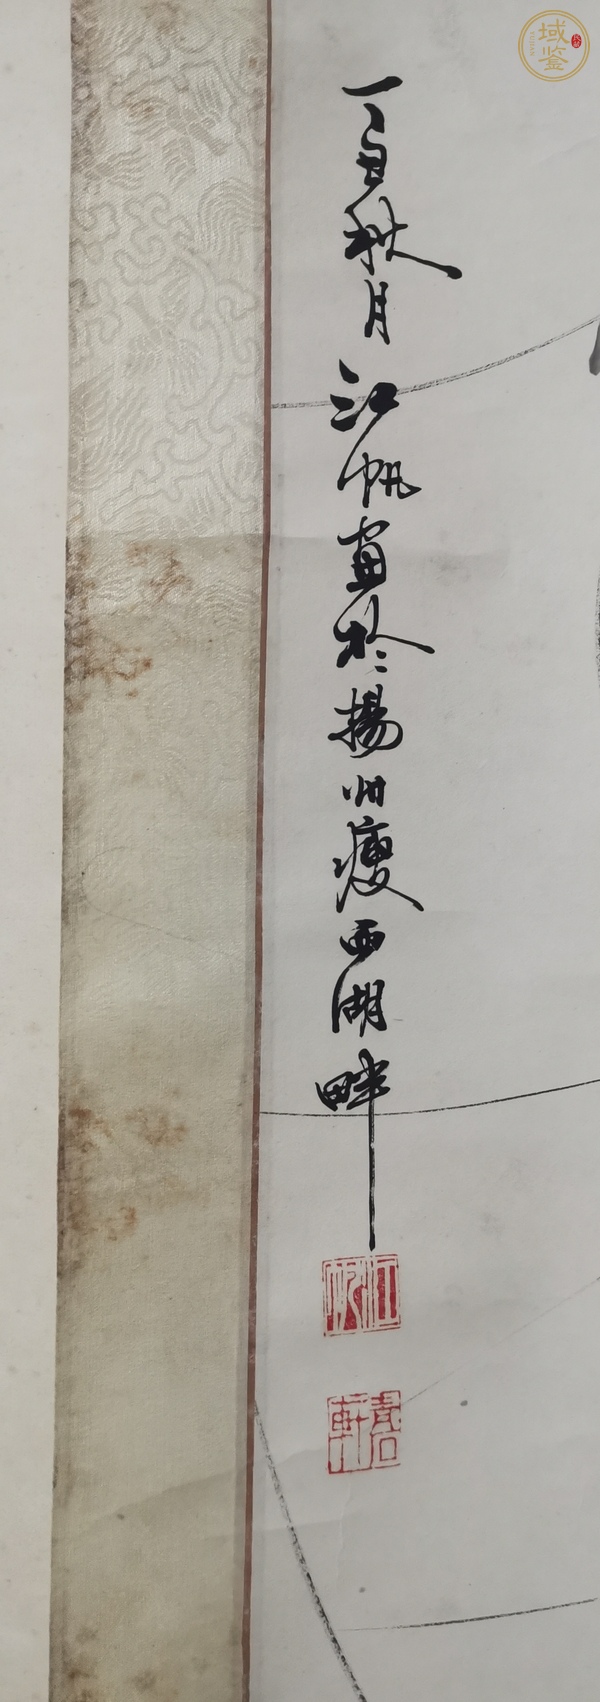 域鉴
丁丑秋月江帆畫於揚州瘦西湖畔
江帆